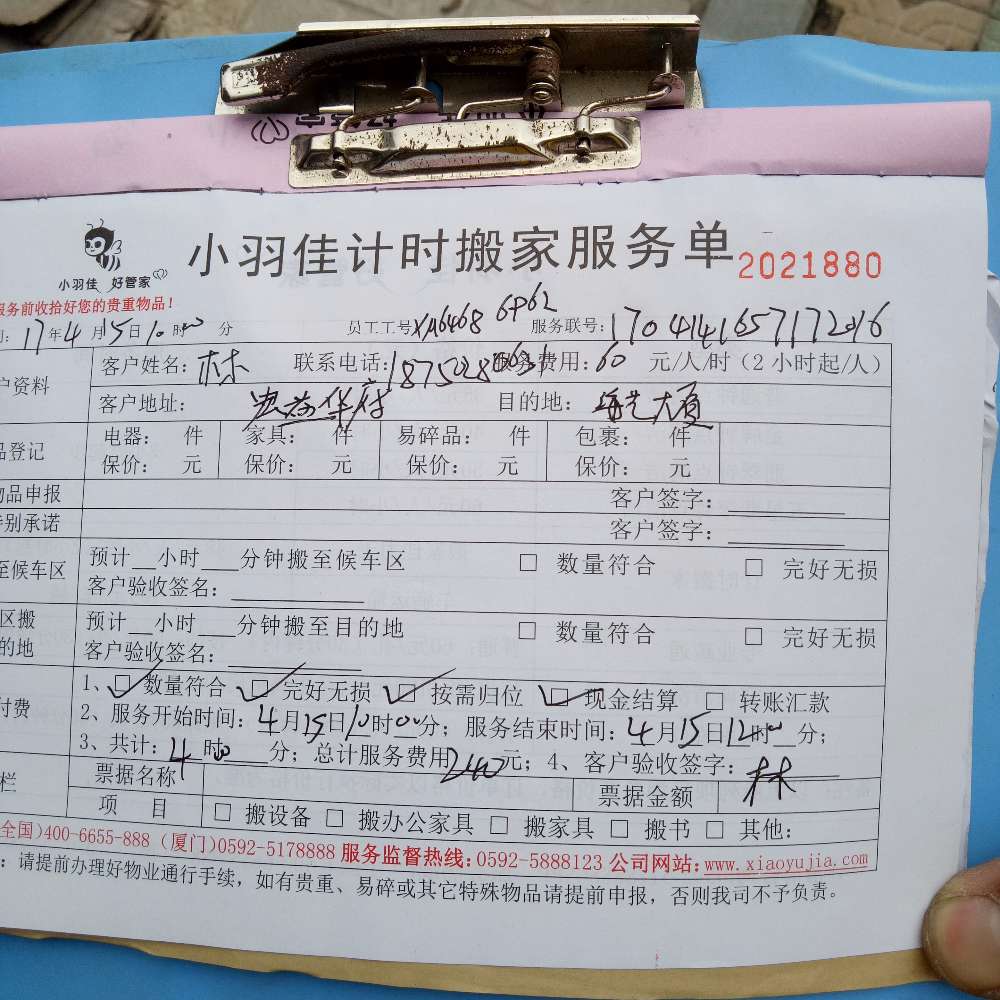 小羽佳 好管家
小羽佳计时搬家服务单 2021880
服务前收拾好您的贵重物品!
17年4月15日10时00分 员工工号:XA6468 6962 服务联号:
客户资料 客户姓名:林 联系电话: 服务费用:60元/人/时(2小时起/人)
客户地址: 华府 目的地: 大厦
品登记 电器: 件 家具: 件 易碎品: 件 包裹: 件
保价: 元 保价: 元 保价: 元 保价: 元
物品申报 客户签字:
特别承诺 客户签字:
至候车区 预计__小时___分钟搬至候车区 □ 数量符合 □ 完好无损
客户验收签名:
区搬 预计__小时___分钟搬至目的地 □ 数量符合 □ 完好无损
的地 客户验收签名:
付费 1、☑数量符合 ☑完好无损 ☑按需归位 ☑现金结算 □ 转账汇款
2、服务开始时间:4月15日10时00分;服务结束时间:4月15日12时00分;
3、共计:4时00分;总计服务费用240元;4、客户验收签字:林
栏 票据名称 票据金额
项 目 □ 搬设备 □ 搬办公家具 □ 搬家具 □ 搬书 □ 其他:
全国)400-6655-888 (厦门)0592-5178888 服务监督热线:0592-5888123 公司网站:www.xiaoyujia.com
:请提前办理好物业通行手续,如有贵重、易碎或其它特殊物品请提前申报,否则我司不予负责。